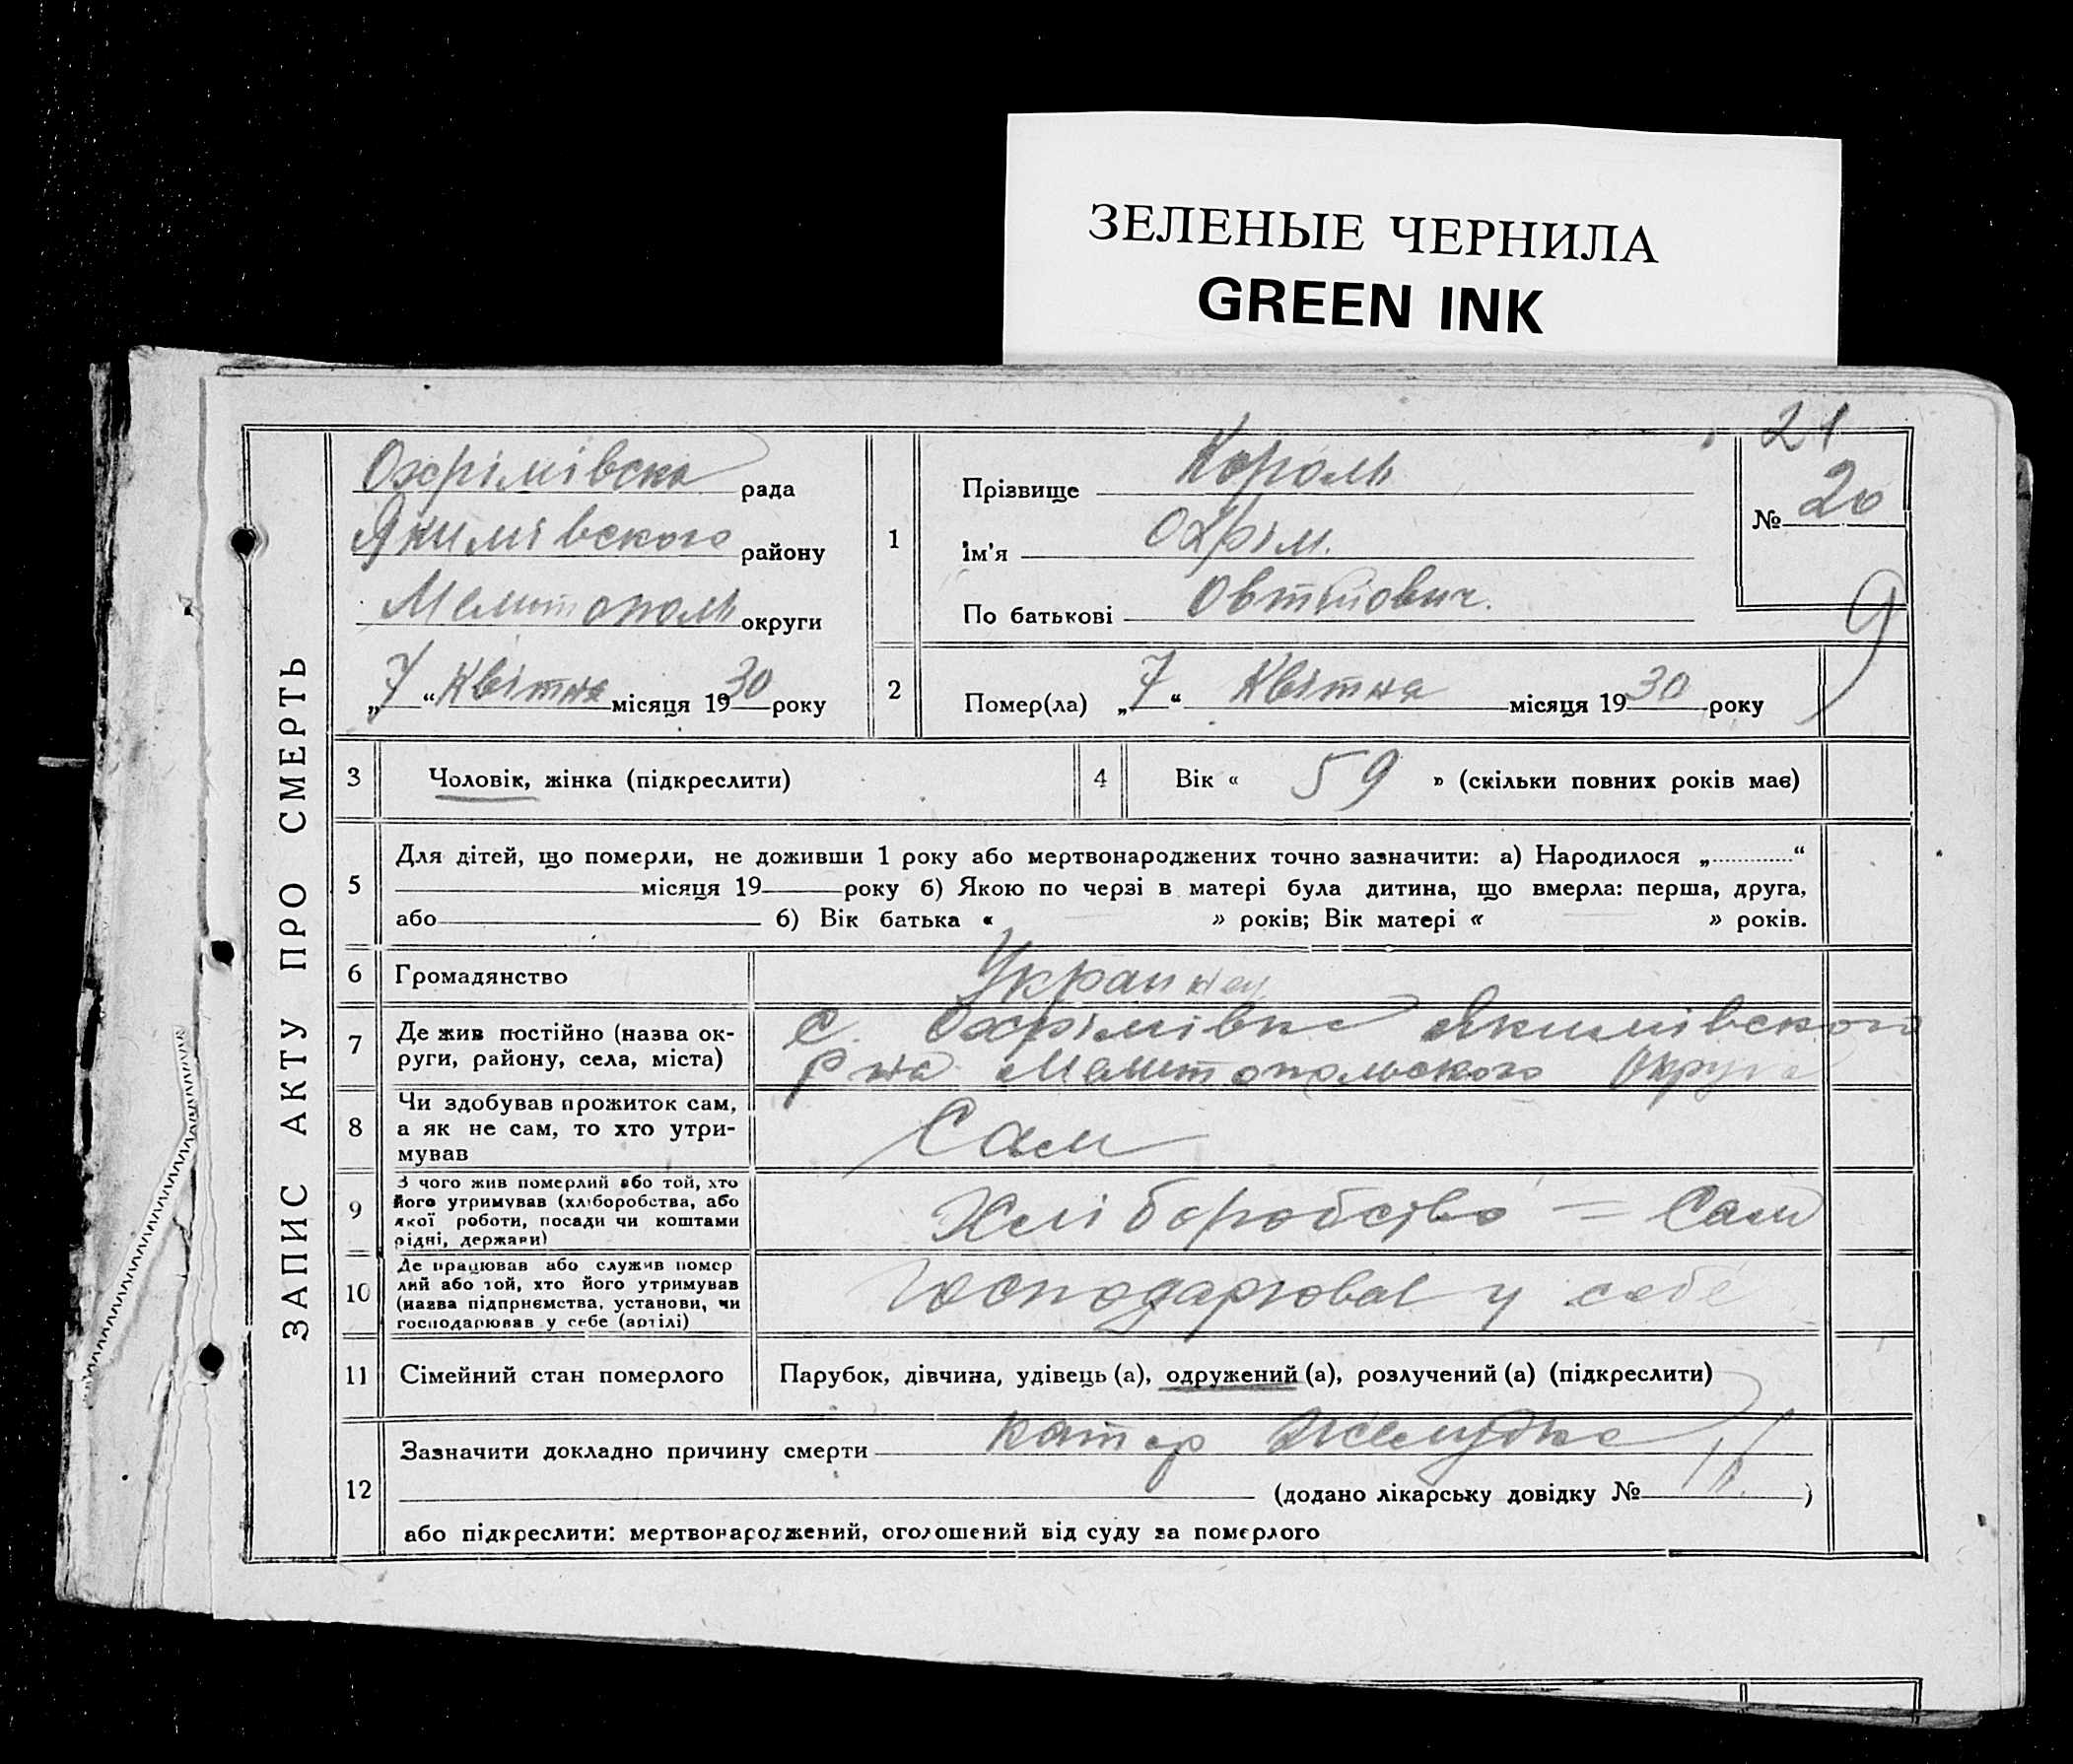 ЗЕЛЕНЫЕ ЧЕРНИЛА
GREEN INK
ЗАПИС АКТУ ПРО СМЕРТЬ
Охрімівска рада
Якимівского району
Мелитополь округи
„7“ Квітня місяця 1930 року
21
1 Прізвище Король
№ 20
Ім'я Охрім.
По батькові
9
2 Помер(ла) „7“ Квітня місяця 1930 року
3 Чоловік, жінка (підкреслити)
4 Вік « 59 » (скільки повних років має)
5 Для дітей, що померли, не доживши 1 року або мертвонароджених точно зазначити: а) Народилося „ “
місяця 19 року б) Якою по черзі в матері була дитина, що вмерла: перша, друга,
або б) Вік батька « » років; Вік матері « » років.
6 Громадянство
7 Де жив постійно (назва ок-
руги, району, села, міста)
с. Охрімівка Якимівского
р на Мелитопольского Округа
8 Чи здобував прожиток сам,
а як не сам, то хто утри-
мував
Сам
9 З чого жив померлий або той, хто
його утримував (хліборобства, або
якої роботи, посади чи коштами
рідні, держави)
Хліборобство = Сам
10 Де працював або служив помер
лий або той, хто його утримував
(назва підприємства, установи, чи
господарював у себе (артілі)
Господарював у себе
11 Сімейний стан померлого
Парубок, дівчина, удівець (а), одружений (а), розлучений (а) (підкреслити)
12 Зазначити докладно причину смерти катар желудка
(додано лікарську довідку № )
або підкреслити: мертвонароджений, оголошений від суду за померлого